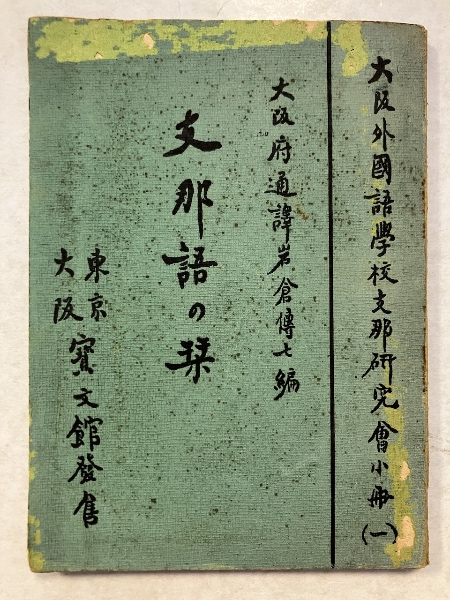 大阪外國語學校支那研究會小冊(一)
大阪府通譯岩倉傳七編
支那語の栞
東京
大阪
寳文館發售